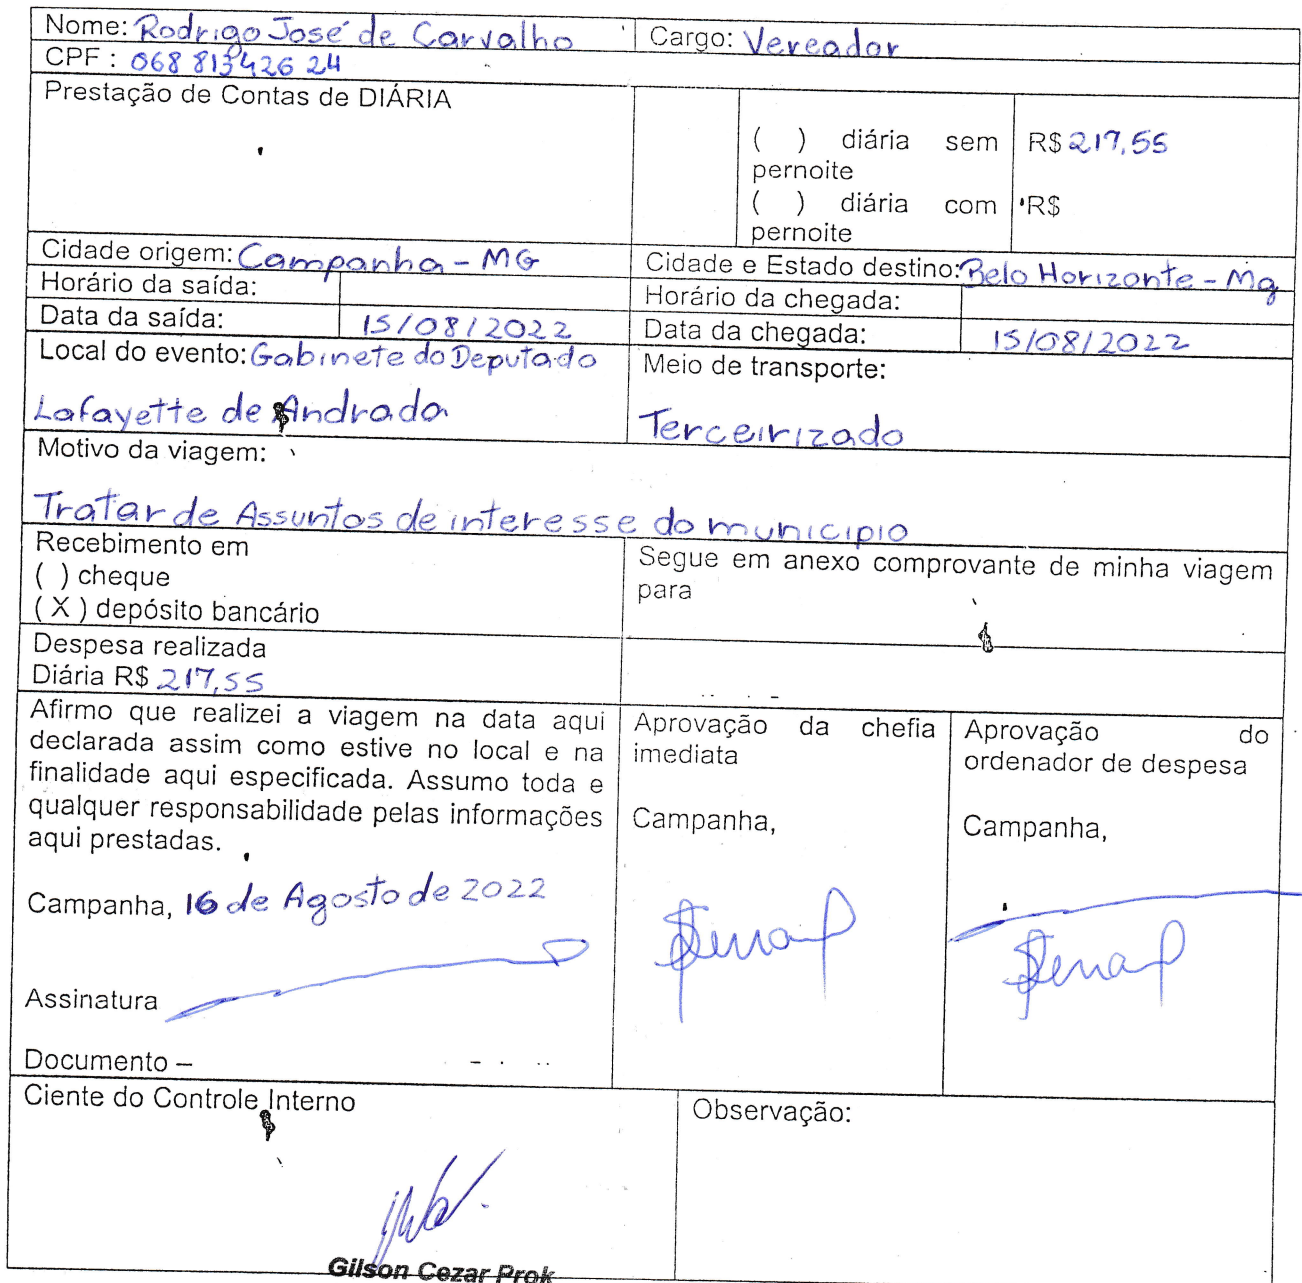 Nome: Rodrigo José de Carvalho Cargo: Vereador
CPF : 068 813426 24
Prestação de Contas de DIÁRIA
( ) diária sem pernoite R$ 217,55
( ) diária com pernoite R$
Cidade origem: Campanha - MG Cidade e Estado destino: Belo Horizonte - Mg
Horário da saída: Horário da chegada:
Data da saída: 15/08/2022 Data da chegada: 15/08/2022
Local do evento: Gabinete do Deputado
Lafayette de Andrada
Meio de transporte:
Terceirizado
Motivo da viagem:
Tratar de Assuntos de interesse do municipio
Recebimento em
( ) cheque
( X ) depósito bancário
Segue em anexo comprovante de minha viagem
para
Despesa realizada
Diária R$ 217,55
Afirmo que realizei a viagem na data aqui
declarada assim como estive no local e na
finalidade aqui especificada. Assumo toda e
qualquer responsabilidade pelas informações
aqui prestadas.
Campanha, 16 de Agosto de 2022
Assinatura
Documento –
Aprovação da chefia
imediata
Campanha,
Aprovação do
ordenador de despesa
Campanha,
Ciente do Controle Interno
Gilson Cezar Prok
Observação: